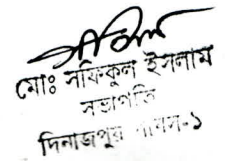 মোঃ সফিকুল ইসলাম
সভাপতি
দিনাজপুর পবিস-১